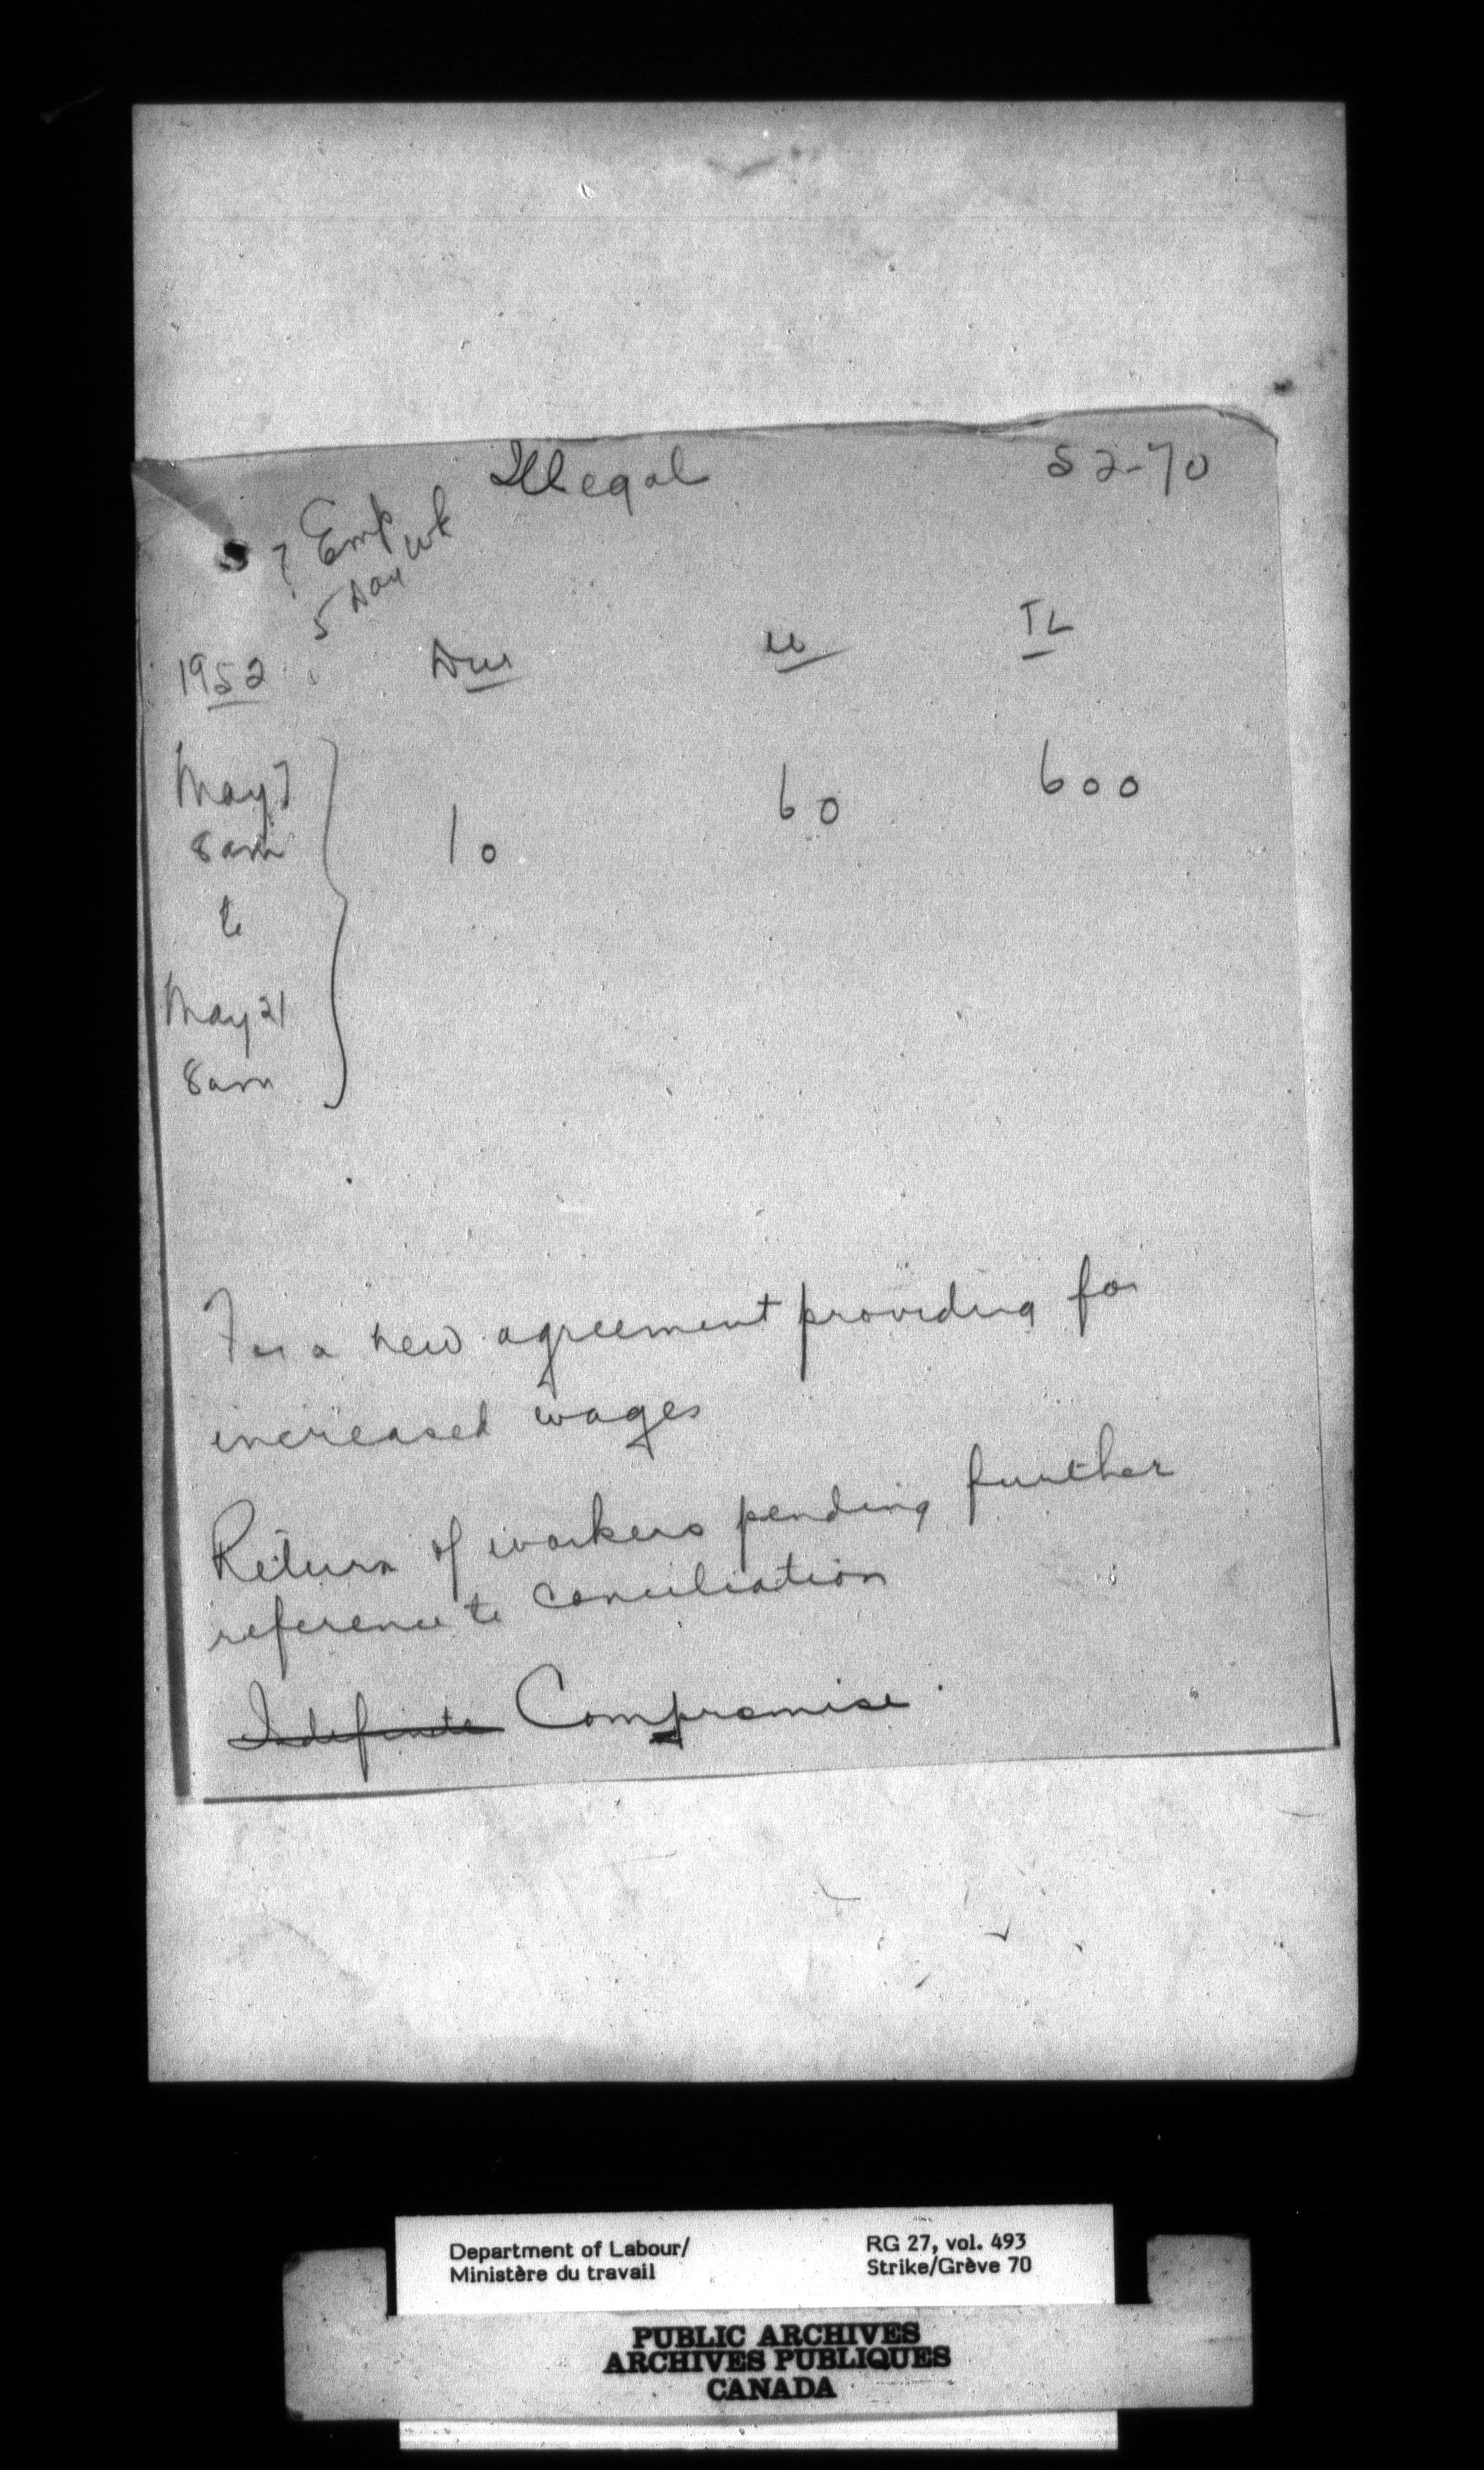 Illegal 52-70
? Emp
5 Day wk
1952 Dur W TL
May 7
8 am 10 60 600
to
May 21
8 am
For a new agreement providing for
increased wages
Return of workers pending further
reference to conciliation
Indefinite Compromise.
Department of Labour/ RG 27, vol. 493
Ministère du travail Strike/Grève 70
PUBLIC ARCHIVES
ARCHIVES PUBLIQUES
CANADA